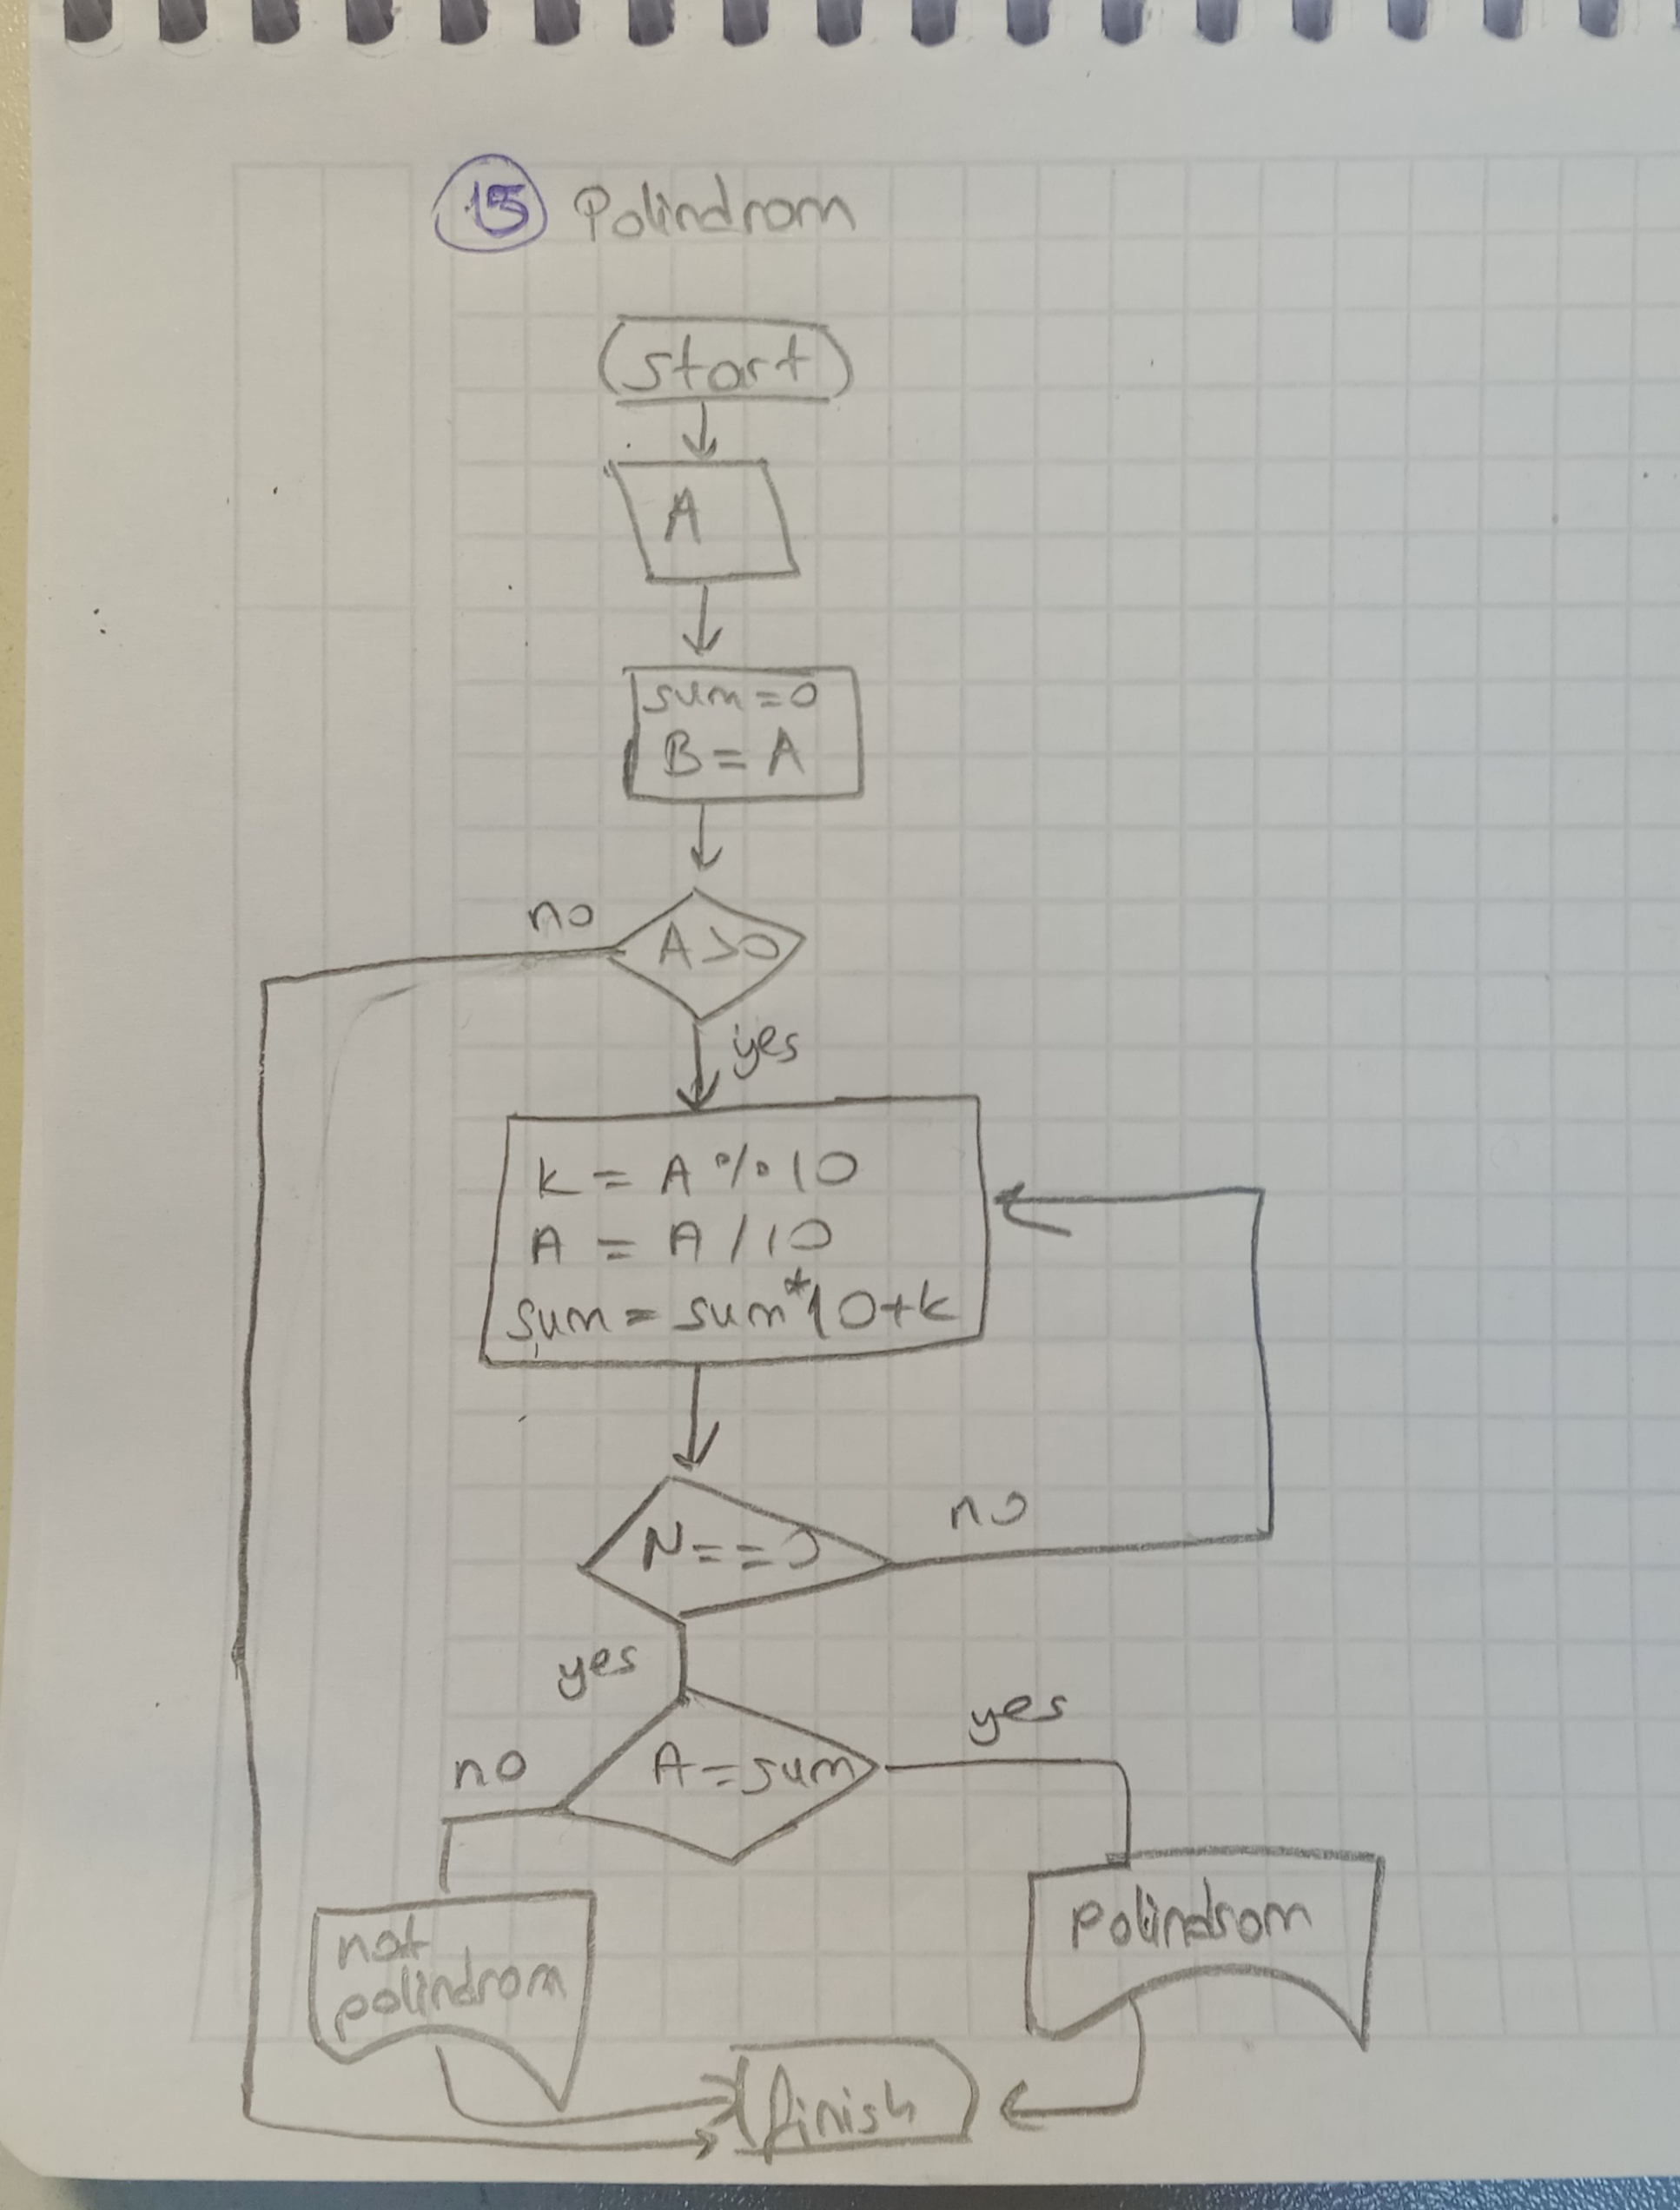 15 Polindrom
start
A
sum=0
B = A
no
A>0
yes
k = A % 10
A = A / 10
sum = sum*10+k
N==0
no
yes
yes
no
A=sum
polindrom
not
polindrom
finish